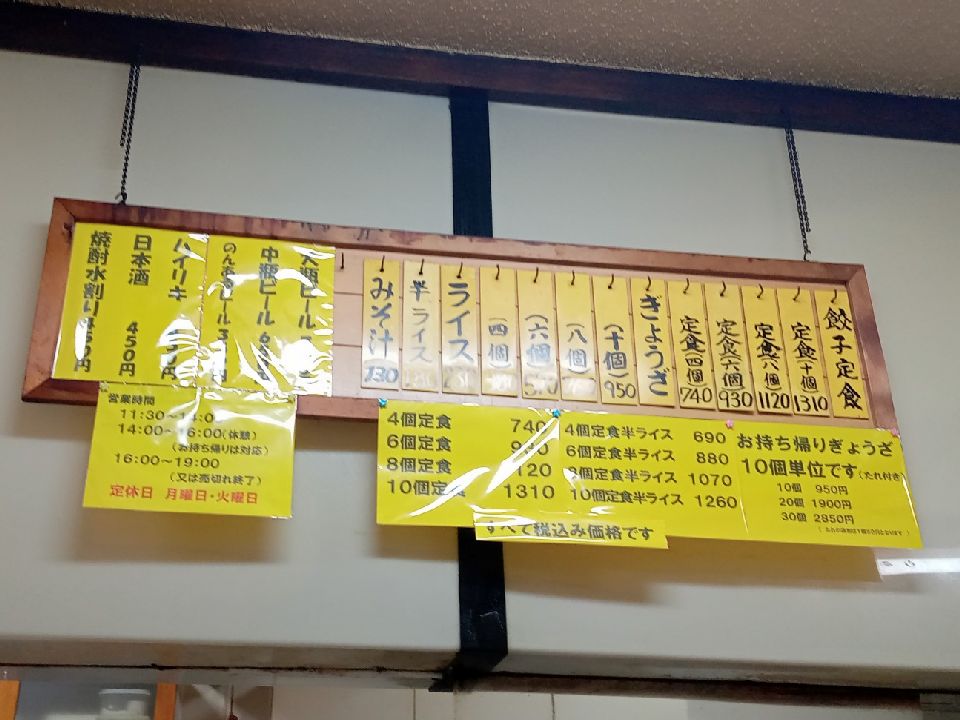 餃子定食
定食(十個) 1310
定食(八個) 1120
定食(六個) 930
定食(四個) 740
ぎょうざ
(十個) 950
(八個)
(六個) 570
(四個)
ライス
半ライス
みそ汁 130
大瓶ビール
中瓶ビール
のんあるビール
ハイリキ
日本酒 450円
焼酎水割り
営業時間
11:30～14:00
14:00～16:00(休憩)
(お持ち帰りは対応)
16:00～19:00
(又は売切れ終了)
定休日 月曜日・火曜日
4個定食 740
6個定食 930
8個定食 1120
10個定食 1310
4個定食半ライス 690
6個定食半ライス 880
8個定食半ライス 1070
10個定食半ライス 1260
お持ち帰りぎょうざ
10個単位です(たれ付き)
10個 950円
20個 1900円
30個 2850円
すべて税込み価格です